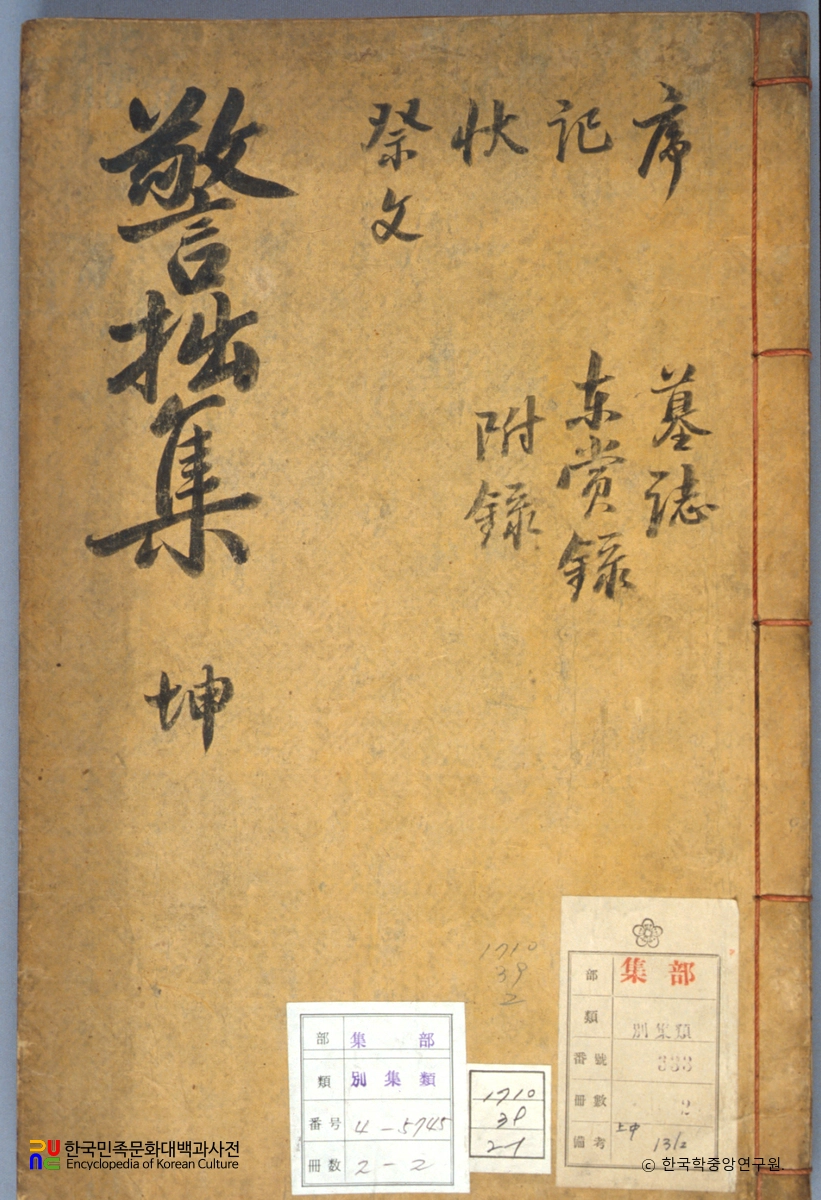 警拙集 坤
序
記
狀
祭文
墓誌
東賞錄
附錄
1710
39
2
部 集部
類 別集類
番号 4-5745
冊數 2-2
1710
39
2-1
部 集部
類 別集類
番號 333
冊數 2
備考 1312
한국민족문화대백과사전
Encyclopedia of Korean Culture
ⓒ 한국학중앙연구원